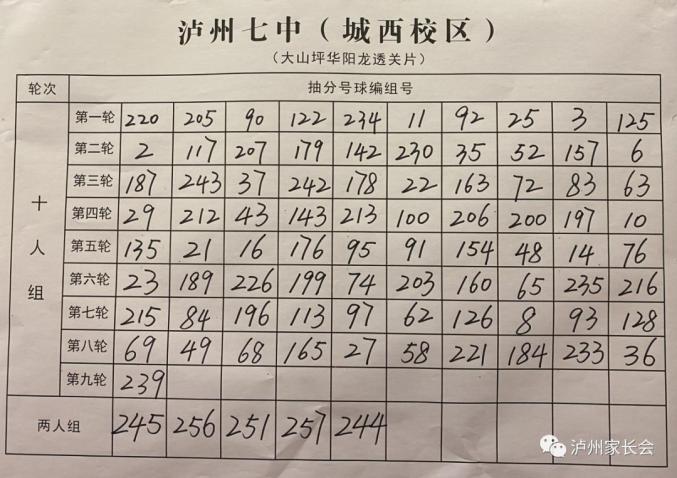 泸州七中（城西校区）
（大山坪华阳龙透关片）
轮次 抽分号球编组号
十人组
第一轮 220 205 90 122 234 11 92 25 3 125
第二轮 2 117 207 179 142 230 35 52 157 6
第三轮 187 243 37 242 178 22 163 72 83 63
第四轮 29 212 43 143 213 100 206 200 197 10
第五轮 135 21 16 176 95 91 154 48 14 76
第六轮 23 189 226 199 74 203 160 65 235 216
第七轮 215 84 196 113 97 62 126 8 93 128
第八轮 69 49 68 165 27 58 221 184 233 36
第九轮 239
两人组 245 256 251 257 244
泸州家长会